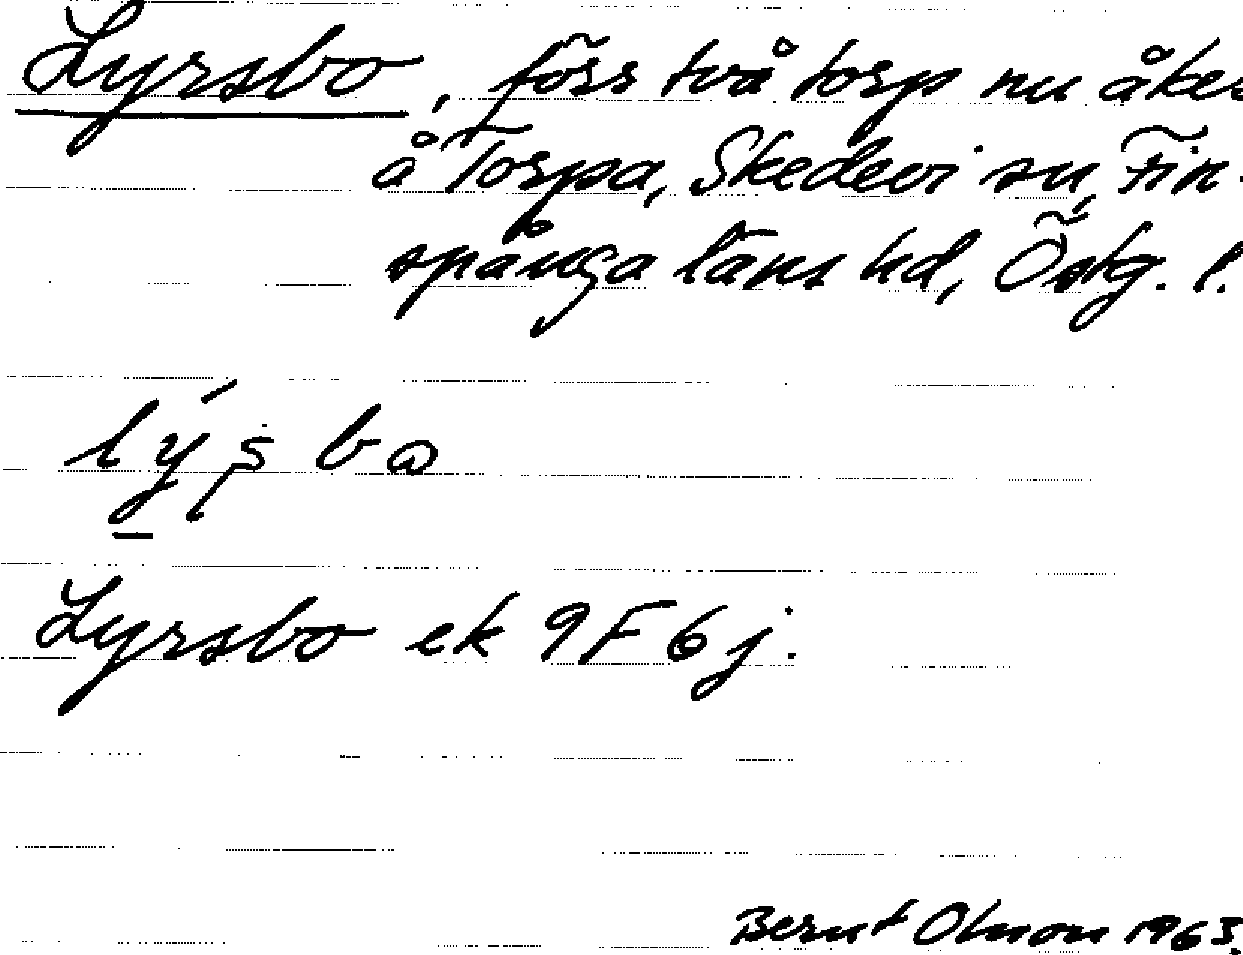 Lyrsbo, förr två torp nu åker
å Torpa, Skedevi sn, Fin-
spånga läns hd, Östg. l.
lýşba
Lyrsbo ek 9F6j.
Bernt Olsson 1963.